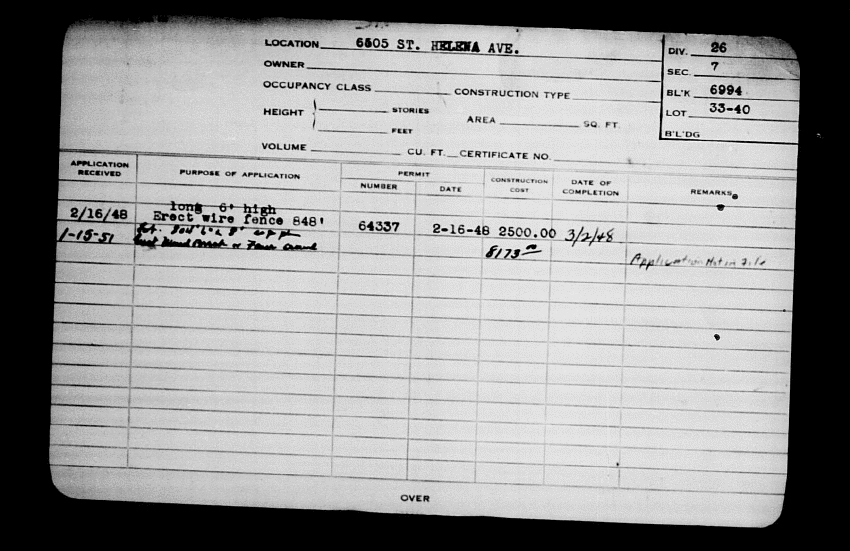 LOCATION 6505 ST. HELENA AVE.
DIV. 26
OWNER
SEC. 7
OCCUPANCY CLASS CONSTRUCTION TYPE
BL'K 6994
HEIGHT STORIES
LOT 33-40
FEET
AREA SQ. FT.
B'L'DG
VOLUME CU. FT. CERTIFICATE NO.
APPLICATION RECEIVED
PURPOSE OF APPLICATION
PERMIT
NUMBER DATE
CONSTRUCTION COST
DATE OF COMPLETION
REMARKS
long 6' high
2/16/48 Erect wire fence 848' 64337 2-16-48 2500.00 3/2/48
1-15-51
8173
Application Not in File
OVER